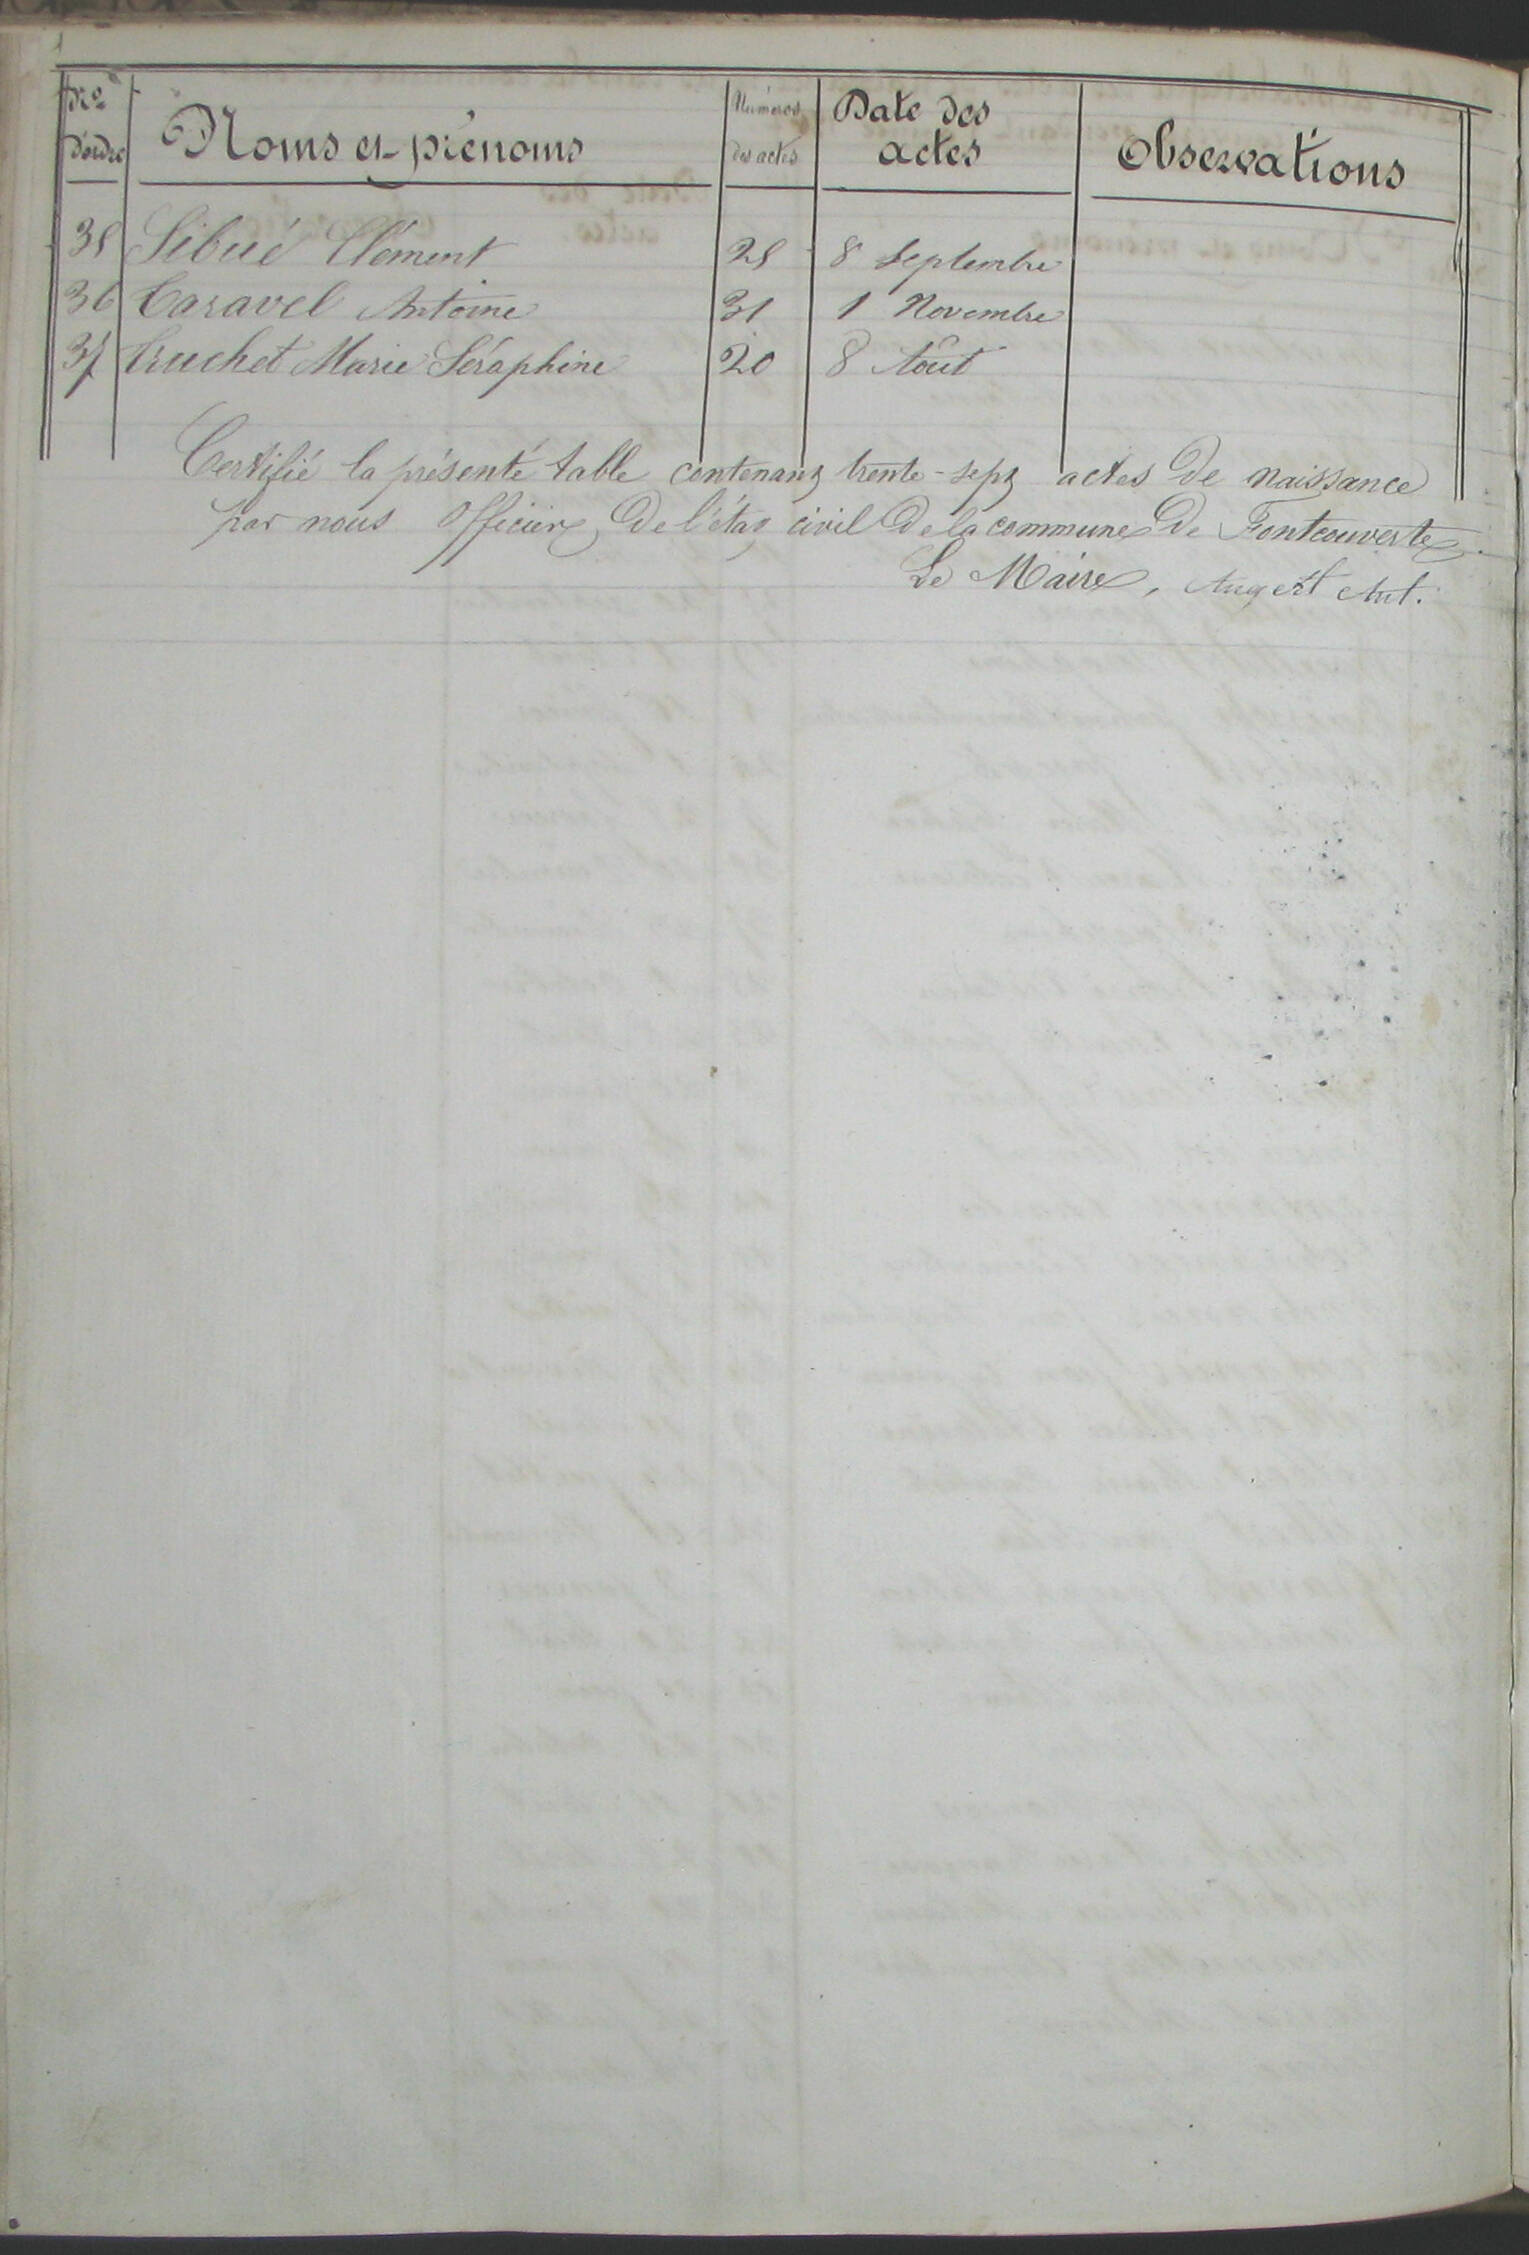 Nos d'ordre | Noms et prénoms | Numéros des actes | Date des actes | Observations
35 Sibué Clément 25 8 Septembre
36 Taravel Antoine 31 1 Novembre
37 Truchet Marie Séraphine 20 8 Août
Certifié la présente table contenant trente-sept actes de naissance
par nous Officier de l'état civil de la commune de Fontcouverte.
Le Maire, Augert Ant.